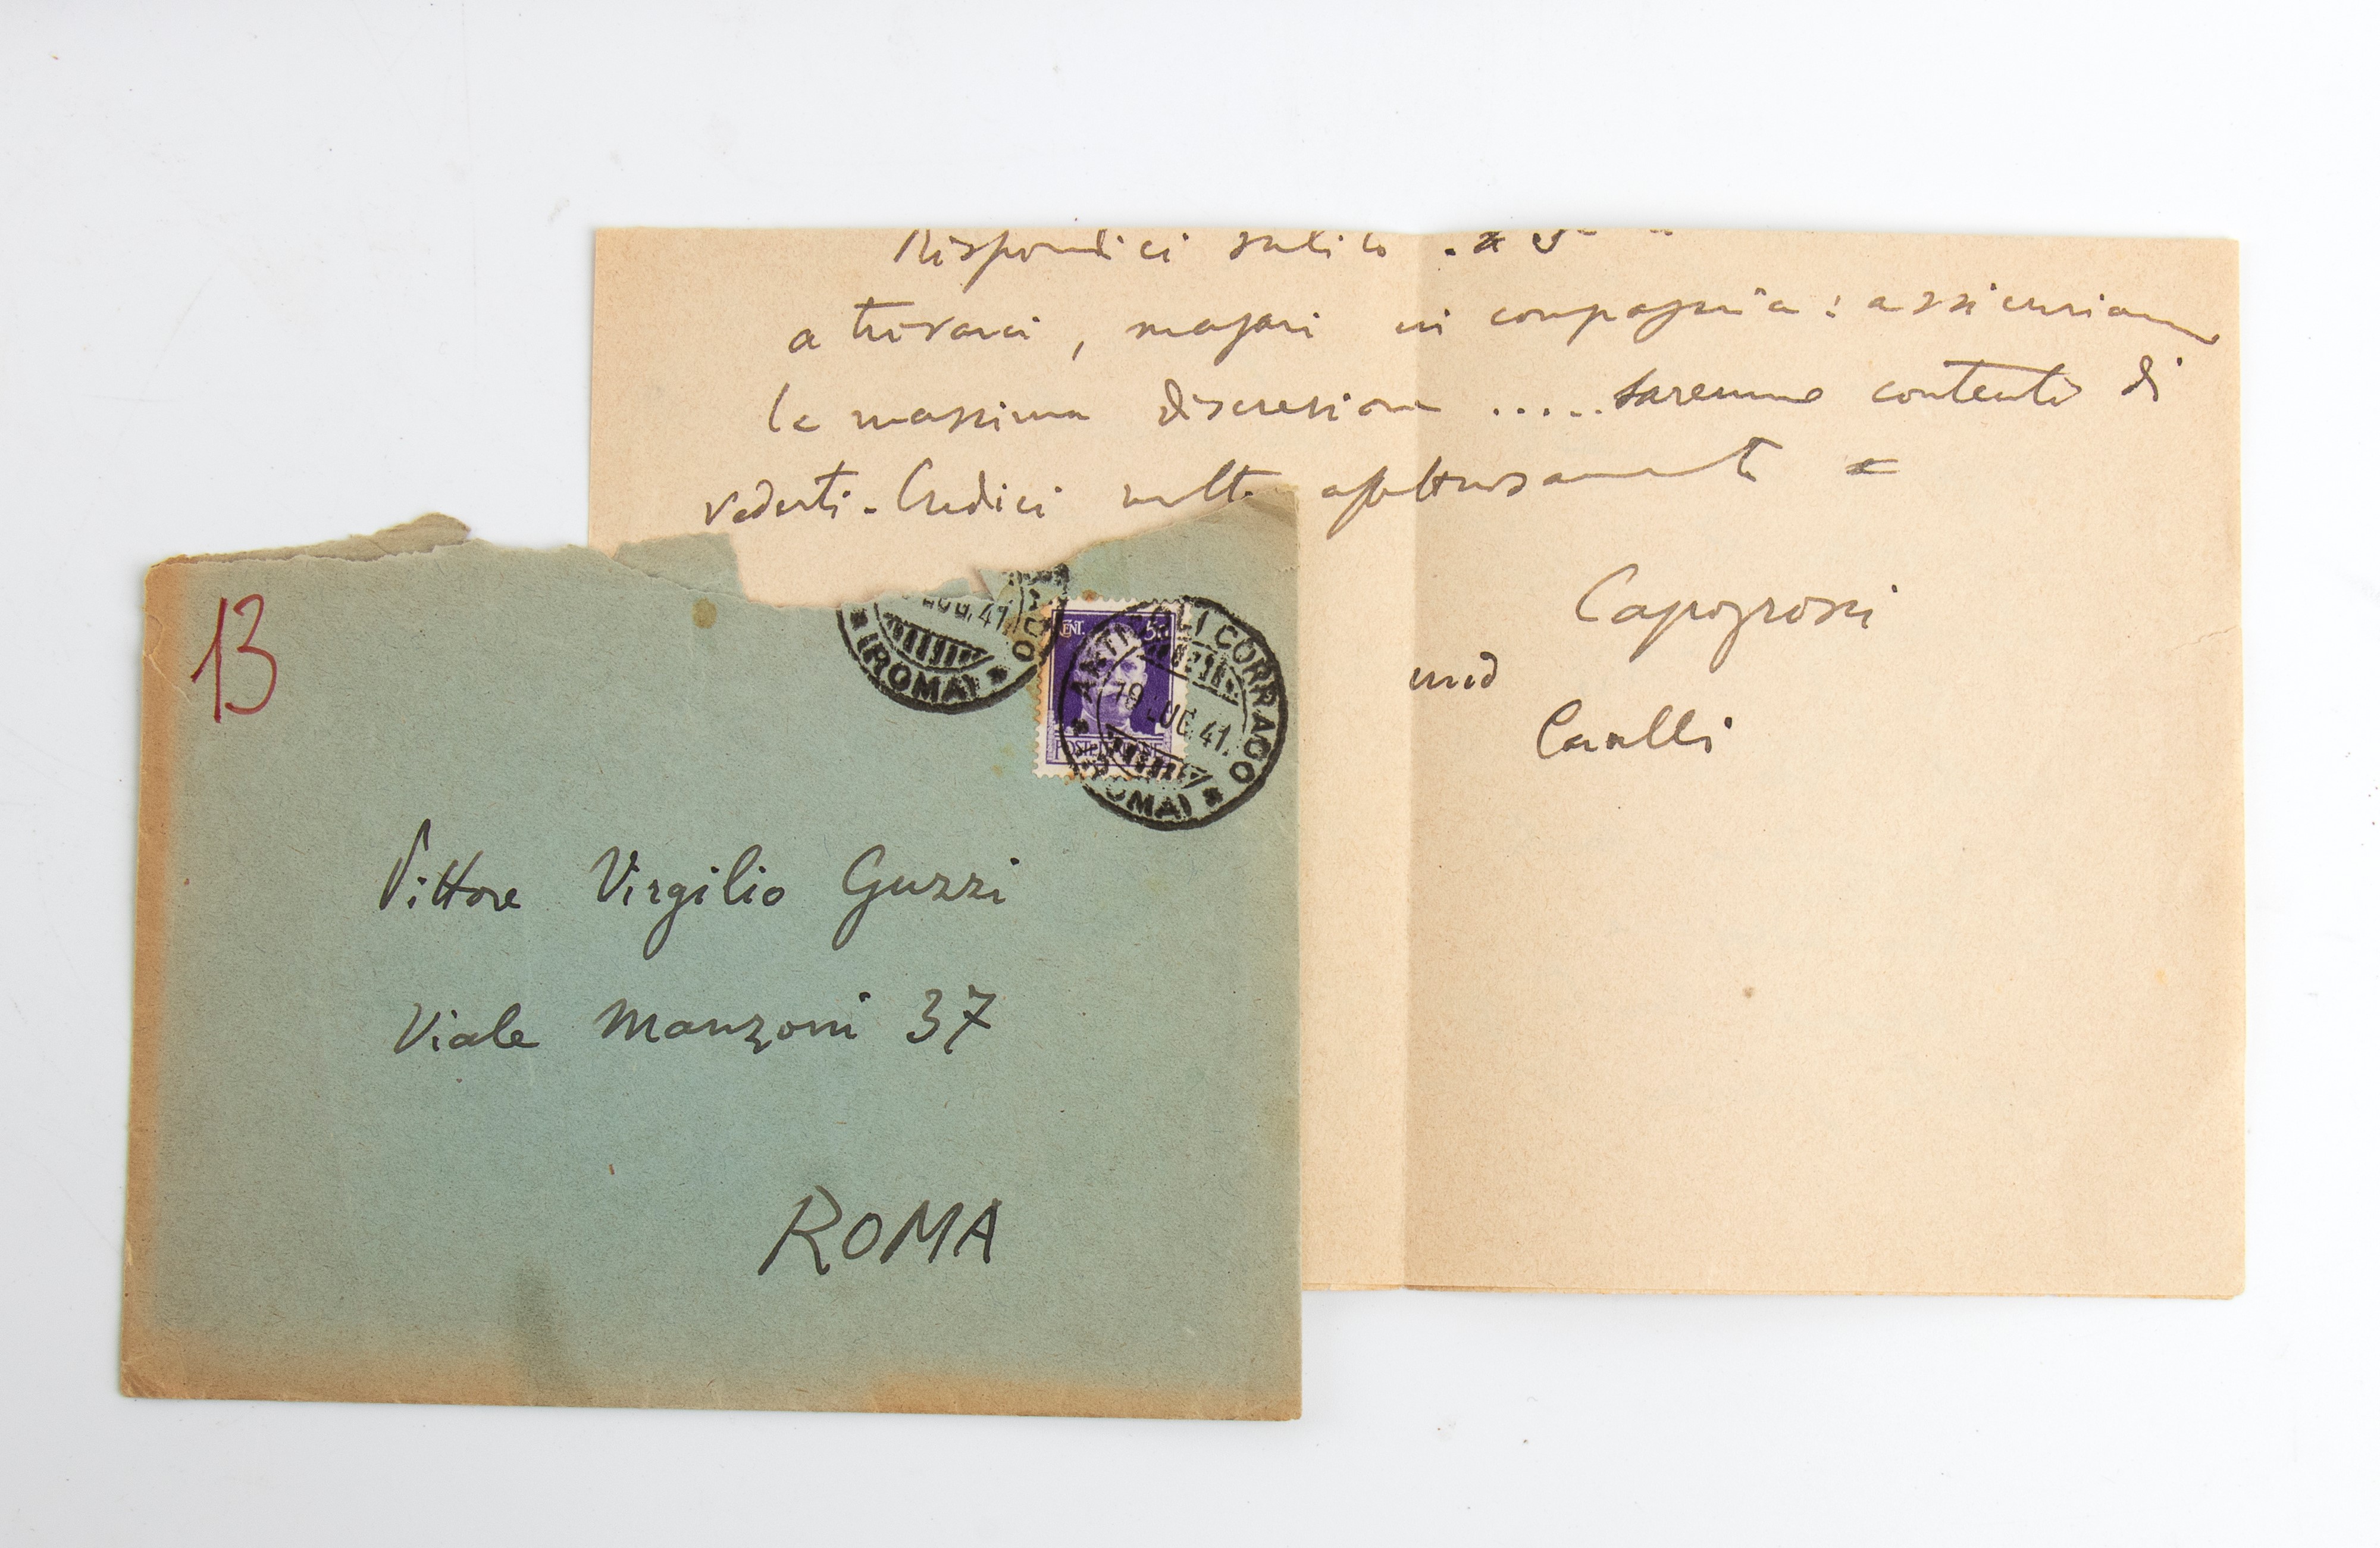 Rispondici subito
a trovarci, magari in compagnia: assicuriamo
la massima discrezione ..... Saremmo contenti di
vederti - Credici molto affettuosamente
Capogrossi
und
Cavalli
13
LUG. 41.
(ROMA)
CENT. 50
POSTE ITALIANE
ANTICOLI CORRADO
19 LUG. 41.
(ROMA)
Vittore Virgilio Guzzi
Viale Manzoni 37
ROMA